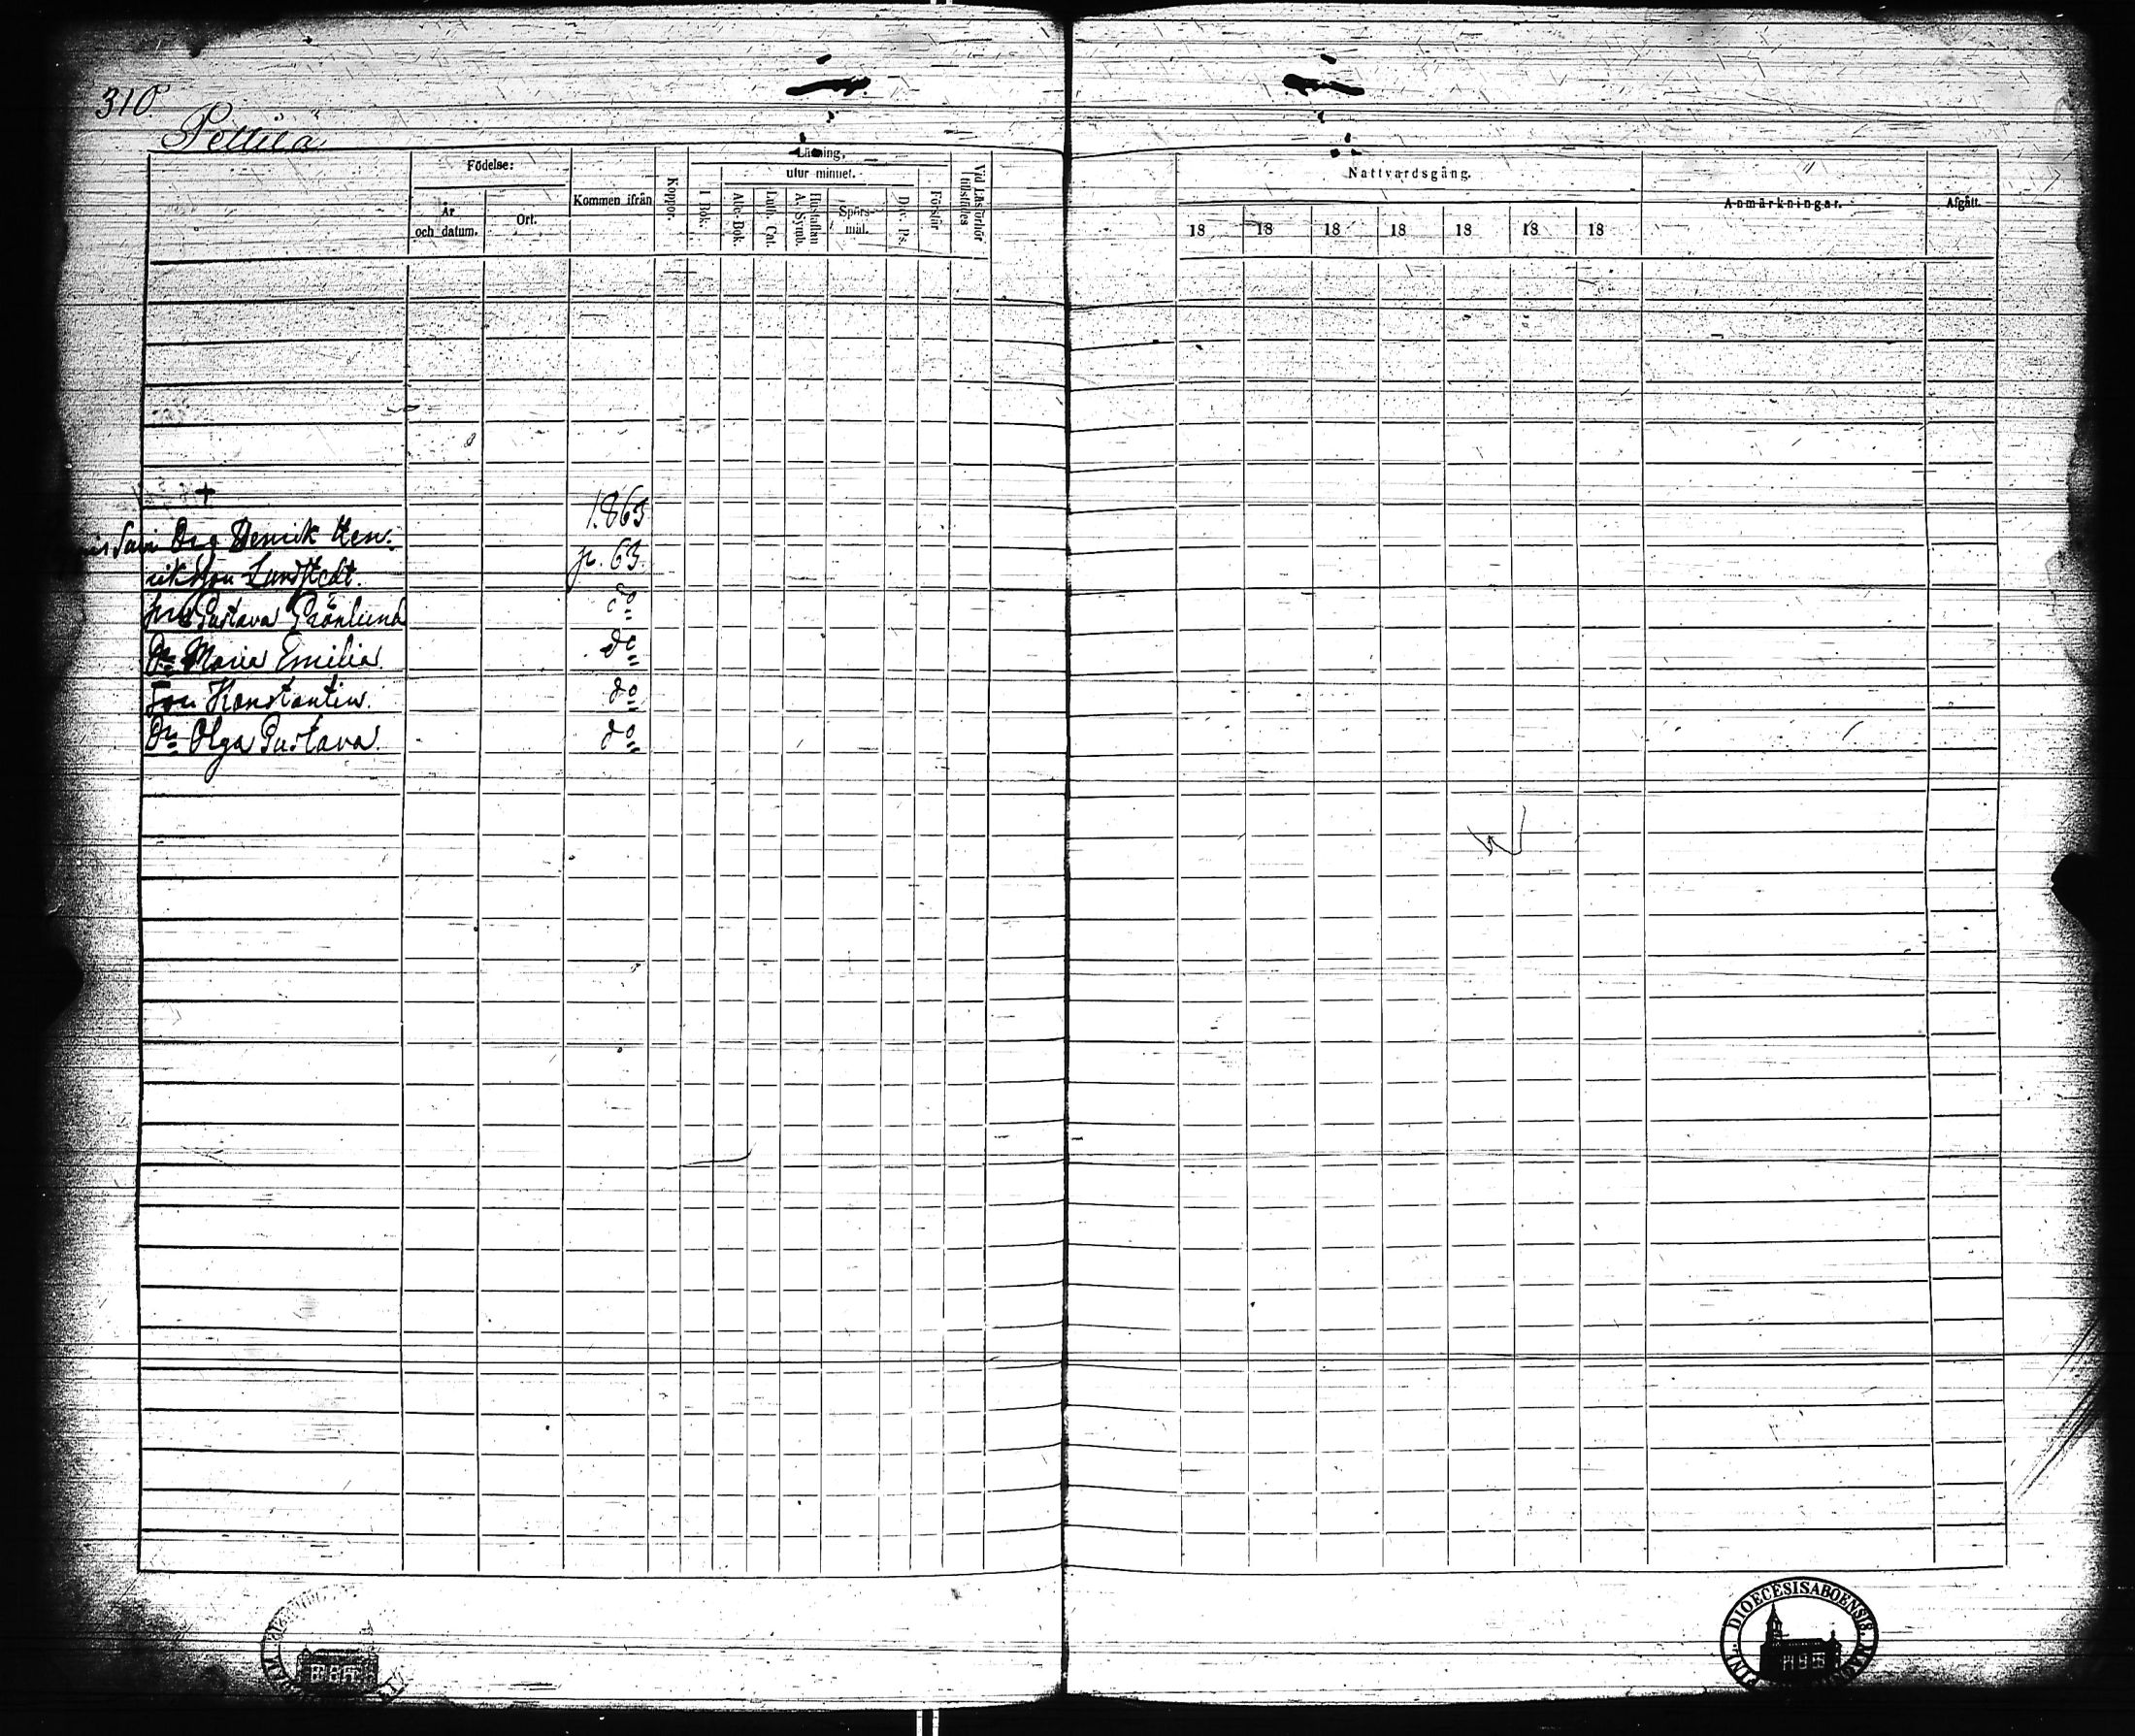 310.
Pettilä
Födelse:
År och datum.
Ort.
Kommen ifrån
Koppor.
Läsning,
utur minnet.
I Bok.
Abc-Bok.
Luth. Cat.
Hustaflan A. Symb.
Spörsmål.
Dav. Ps.
Förstår
Vid Läsförhör tillstädes
Nattvardsgång.
18 18 18 18 18 18 18
Anmärkningar.
Afgått.
1863
Drg Henrik Hen-
riksson Lundstedt. p. 63
Gustava Grönlund do
Dr Maria Emilia. do
Son Konstantin. do
Dr Olga Gustava. do
DIOECESIS ABOENSIS